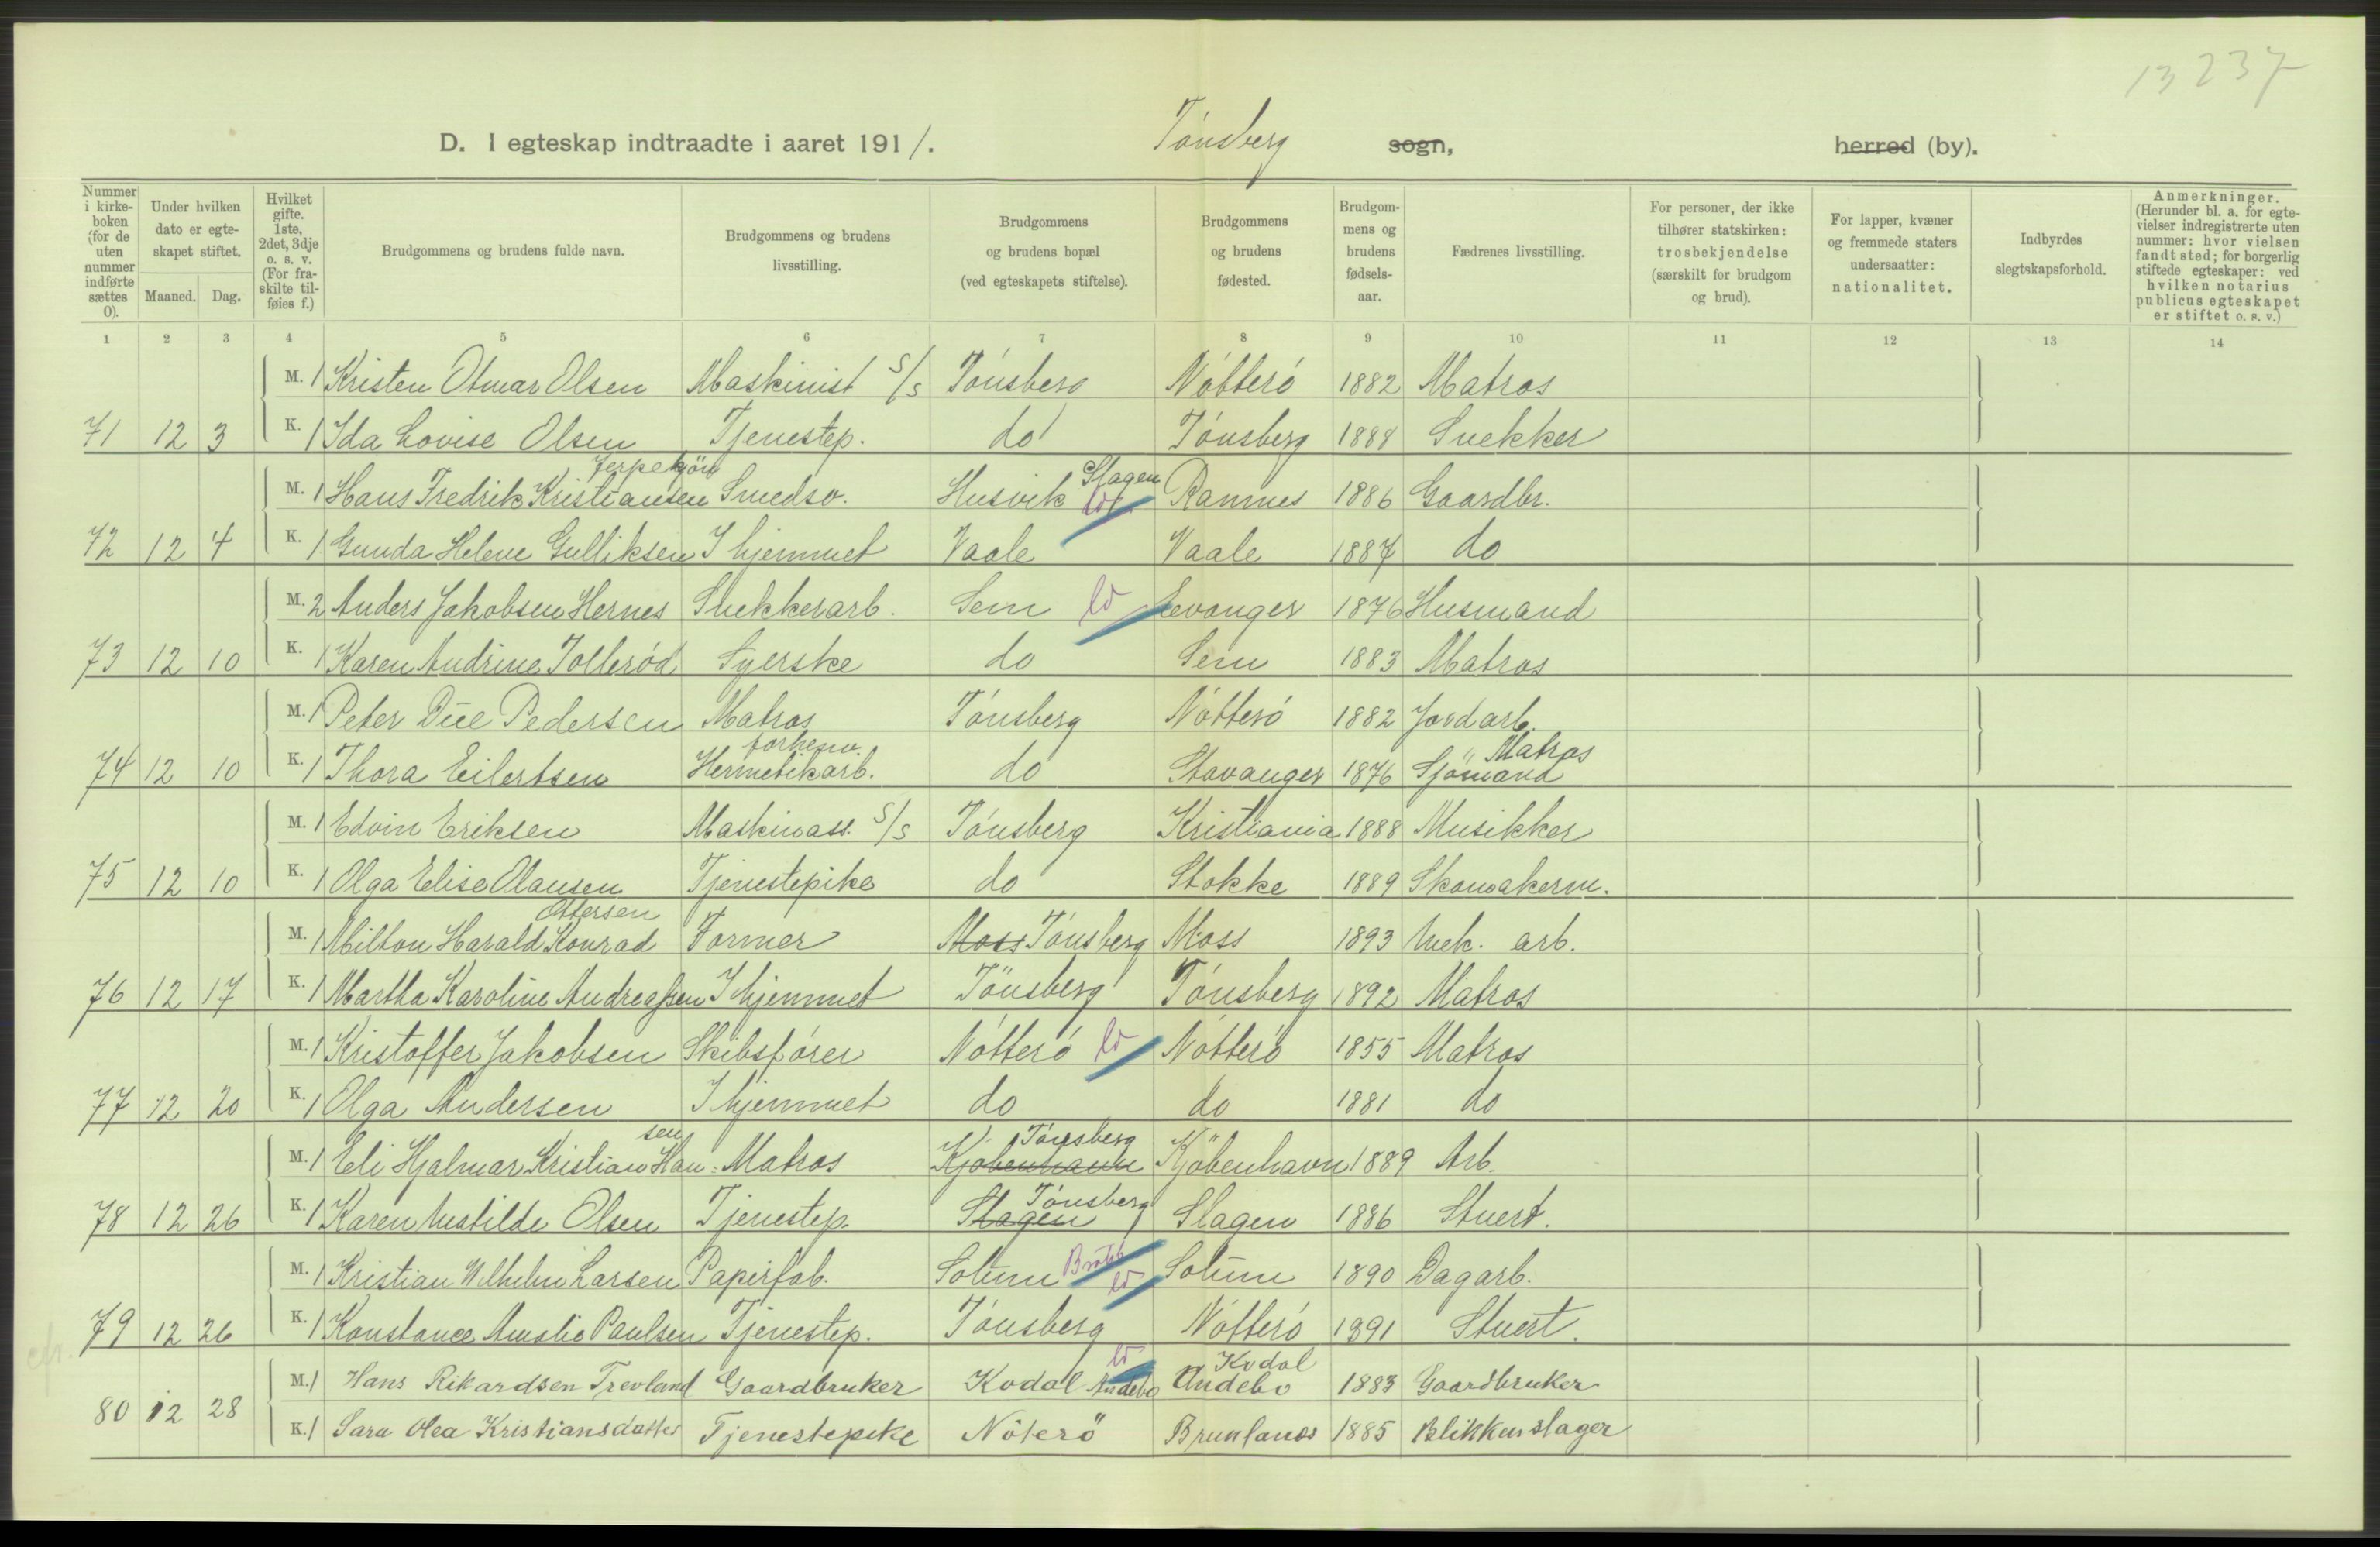 13 237
D. I egteskap indtraadte i aaret 1911. Tönsberg sogn, herred (by).
Nummer i kirke-boken (for de uten nummer indførte sættes 0).
Under hvilken dato er egte-skapet stiftet.
Maaned. Dag.
Hvilket gifte. 1ste, 2det, 3dje o. s. v. (For fra-skilte til-føies f.)
Brudgommens og brudens fulde navn.
Brudgommens og brudens livsstilling.
Brudgommens og brudens bopæl (ved egteskapets stiftelse).
Brudgommens og brudens fødested.
Brudgom-mens og brudens fødsels-aar.
Fædrenes livsstilling.
For personer, der ikke tilhører statskirken: trosbekjendelse (særskilt for brudgom og brud).
For lapper, kvæner og fremmede staters undersaatter: nationalitet.
Indbyrdes slegtskapsforhold.
Anmerkninger. (Herunder bl. a. for egte-vielser indregistrerte uten nummer: hvor vielsen fandt sted; for borgerlig stiftede egteskaper: ved hvilken notarius publicus egteskapet er stiftet o. s. v.)
1 2 3 4 5 6 7 8 9 10 11 12 13 14
M. 1 Kristen Otmar Olsen Maskinist S/S Tönsberg Nötterö 1882 Matros
71 12 3 K. 1 Ida Lovise Olsen Tjenestep. do Tönsberg 1888 Snekker
Jerpekjön Slagen
M. 1 Hans Fredrik Kristiansen Smedsv. Husvik Ramnes 1886 Gaardbr.
72 12 4 K. 1 Gunda Helene Gulliksen I hjemmet Vaale Vaale 1887 do
M. 2 Anders Jakobsen Hernes Snekkerarb. Sem ld Levanger 1876 Husmand
73 12 10 K. 1 Karen Andrine Tollerød Syerske do Sem 1883 Matros
M. 1 Peter Due Pedersen Matros Tönsberg Nötterö 1882 Jordarb.
forhenv. Matros
74 12 10 K. 1 Thora Eilertsen Hermetikarb. do Stavanger 1876 Sjömand
M. 1 Edvin Eriksen Maskinass. S/S Tönsberg Kristiania 1888 Musikker
75 12 10 K. 1 Olga Elise Olausen Tjenestepike do Stokke 1889 Skomakerm.
Ottersen
M. 1 Milton Harald Konrad Former Moss Tönsberg Moss 1893 Mek. arb.
76 12 17 K. 1 Martha Karoline Andreassen I hjemmet Tönsberg Tönsberg 1892 Matros
M. 1 Kristoffer Jakobsen Skibsförer Nötterö ld Nötterö 1855 Matros
77 12 20 K. 1 Olga Andersen I hjemmet do do 1881 do
sen Tönsberg
M. 1 Eli Hjalmar Kristian Han- Matros Kjöbenhavn Kjöbenhavn 1889 Arb.
Tönsberg
78 12 26 K. 1 Karen Mathilde Olsen Tjenestep. Slagen Slagen 1886 Stuert.
M. 1 Kristian Wilhelm Larsen Papirfab. Solum ld Solum 1890 Dagarb.
79 12 26 K. 1 Konstance Amalie Paulsen Tjenestep. Tönsberg Nötterö 1891 Stuert.
ld Kodal
M. 1 Hans Rikardsen Trevland Gaardbruker Kodal Andebo Andebo 1883 Gaardbruker
80 12 28 K. 1 Sara Olea Kristiansdatter Tjenestepike Nöterö Brunlanes 1885 Blikkenslager